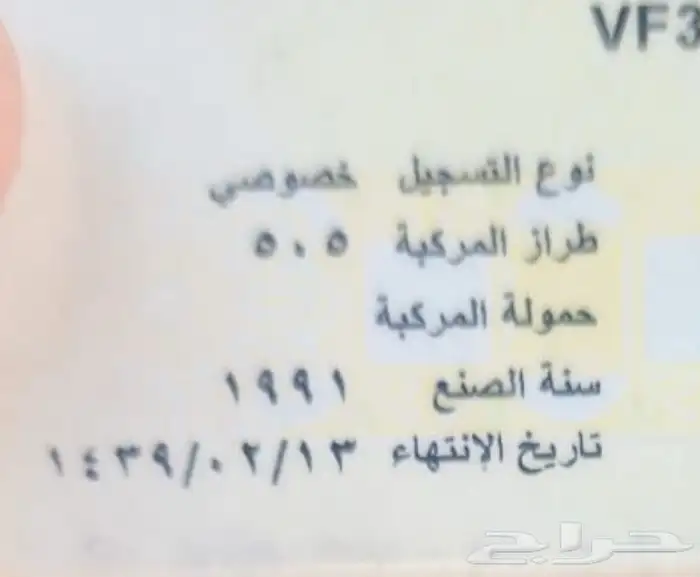 VF3
نوع التسجيل خصوصي
طراز المركبة ٥٠٥
حمولة المركبة
سنة الصنع ١٩٩١
تاريخ الإنتهاء ١٤٣٩/٠٢/١٣
حراج